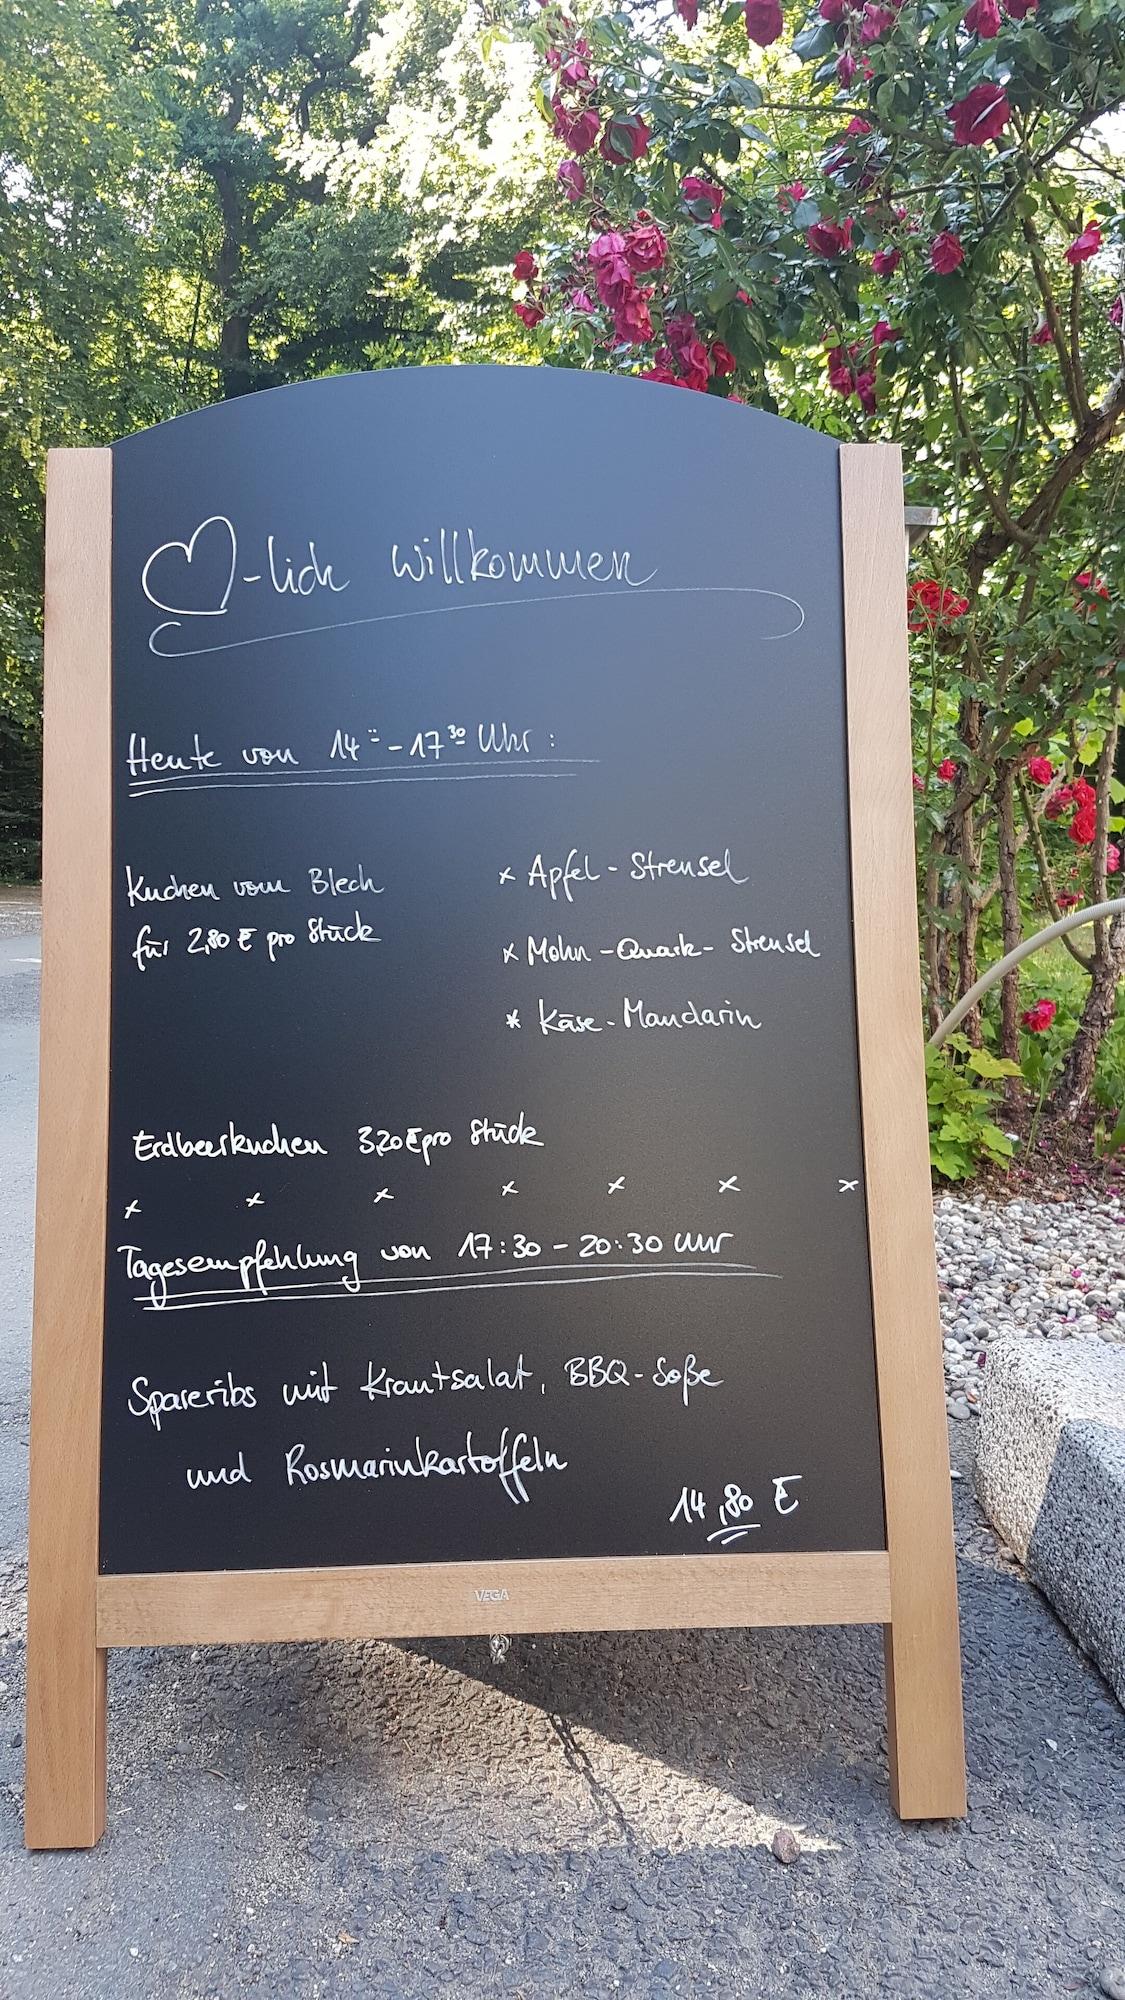 ♡-lich Willkommen
Heute von 14⁰⁰-17³⁰ Uhr:
Kuchen vom Blech
für 2,80 € pro Stück
x Apfel-Streusel
x Mohn-Quark-Streusel
* Käse-Mandarin
Erdbeerkuchen 3,20 € pro Stück
x x x x x x x
Tagesempfehlung von 17:30-20:30 Uhr
Spareribs mit Krautsalat, BBQ-Soße
und Rosmarinkartoffeln
14,80 €
VEGA